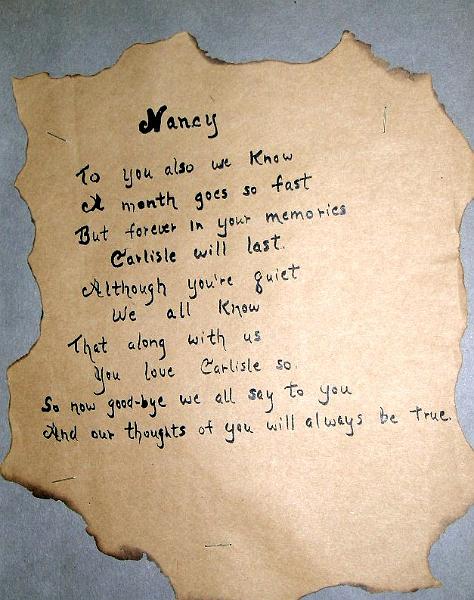 Nancy
To you also we Know
A month goes so fast
But forever in your memories
Carlisle will last.
Although you're quiet
We all Know
That along with us
You love Carlisle so.
So now good-bye we all say to you
And our thoughts of you will always be true.